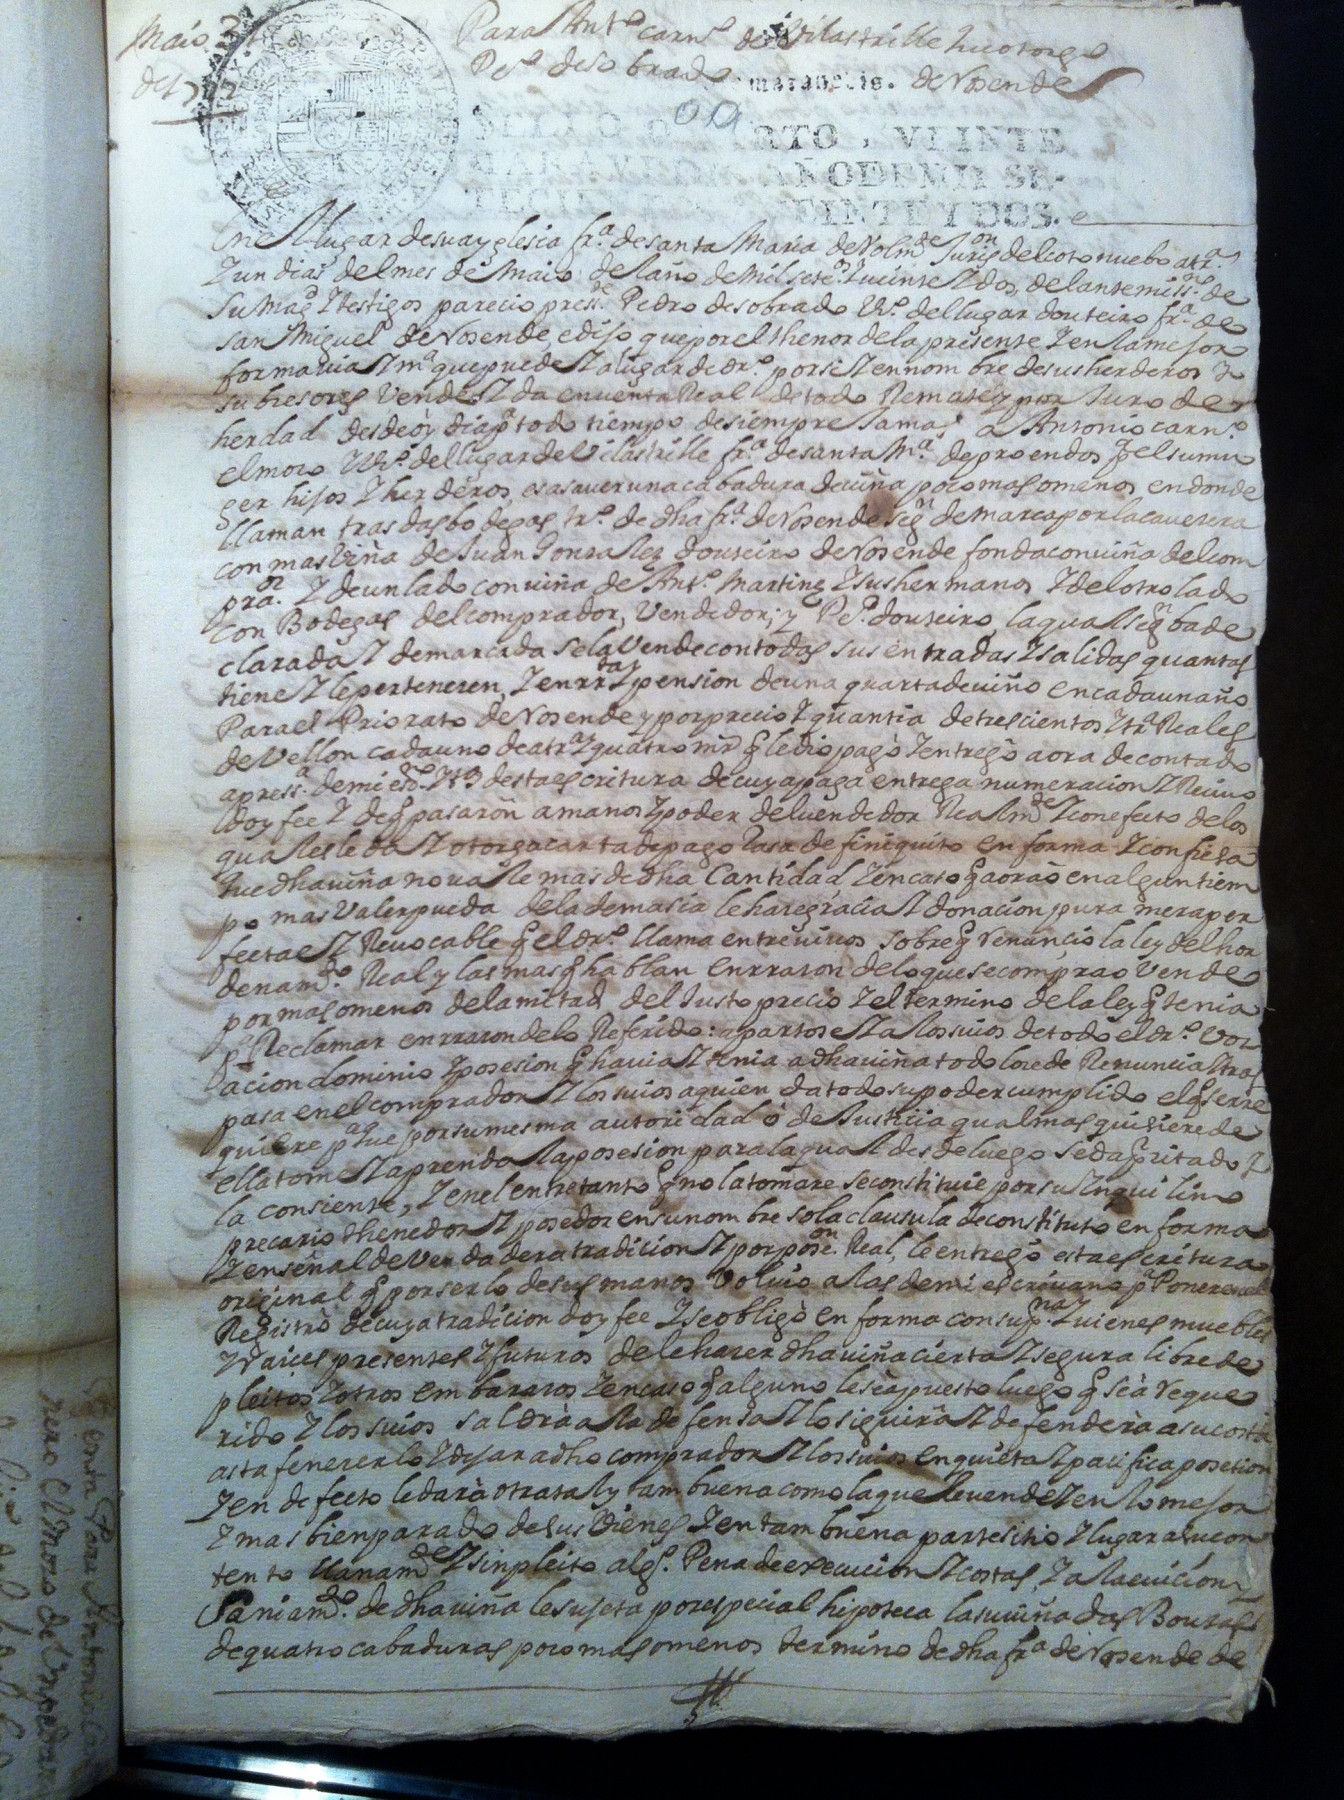 Maio 31
de 1722
Para Antº carnº de Vilastrille que otorgo
Pº de Sobrado de Nosende
maravedis.
SELLO QUARTO, VEINTE
MARAVEDIS, AÑO DE MIL SE-
TECIENTOS Y VEINTE Y DOS.
En el lugar de su ayglesia frª de santa Maria de Nolmde Jurison del coto nuebo a trª
Y un dias del mes de Maio del año de Mil seteos Y veinte Y dos, delante mi ssno de
su Magd Y testigos parecio presste Pedro de sobrado Vº del lugar douteiro frª de
san Miguel de Nosende, e dijo que por el thenor de la presente Y en la mejor
forma via Y mª que puede Y a lugar de drº por si Y en nombre de sus herderos Y
subresores Vende Y da en venta Real de todo Remate y por Juro de
herdad desde oy dia pª todo tiempo de siempre Jamas a Antonio carnº
el moço Vº del lugar de Vilastrille frª de santa Mª de proendos pª el su mu
ger hijos Y herderos, es a saver una cabadura de viña poco mas o menos en donde
llaman tras das bodegas trº de dha frª de Nosende Segn demarca por la cavecera
con mas viña de Juan Gonzalez douteiro de Nosende fonda con viña del com
praor Y de un lado con viña de Antº Martinez Y sus hermanos Y del otro lado
con Bodegas del comprador, Vendedor; y Pº douteiro, la qual segn ba de
clarada Y demarcada se la Vende con todas sus entradas Y salidas quantas
tiene Y le pertenecen, Y en rrta Y pension de una quarta de viño en cada un año
Para el Priorato de Nosende y por precio Y quantia de trescientos Y trª Reales
de Vellon cada uno de a trª Y quatro mrs q le dio pagò Y entregò aora de contado
a pressª de mi esno Y tos desta escritura de cuya paga entrega numeracion Y Recivo
doy fee Y de q pasaron a manos Y poder del vendedor Realmde Y con efecto de los
quales le da Y otorga carta de pago Rasa de finiquito en forma Y confiesa
que dha viña no vale mas de dha Cantidad Y en caso q aora o en algun tiem
po mas Valer pueda de la demasia le hace gracia Y donacion pura mera per
fecta e Y Revocable q el drº llama entre vivos sobre q Renancio la ley del hor
denamdo Real y las mas q hablan en rraron de lo que se compra o Vende
por mas o menos de la mitad del Justo precio Y el termino de la ley q tenia
pª Reclamar en rraron de lo Referido: apartose Y a los suios de todo el drº voz
acion dominio Y posesion q havia Y tenia a dha viña todo lo cede Renuncia Y tras
pasa en el comprador Y los suios a quien da todo su poder cumplido el q se rre
quiere pª que por su mesma autoridad ò de Justicia qual mas quisiere de
ella tome Y aprenda la posesion para la qual desde luego se da q citado Y
la consiente, Y en el entretanto q no la tomare se constituie por su Ynquilino
precario thenedor Y posedor en su nombre so la clausula de constituto en forma
Y en señal de Verdadera tradicion Y por poseon Real, le entregò esta escritura
original q por serlo de sus manos Volvio a las de mi escrivano pª Poner en el
Registro de cuya tradicion doy fee Y se obligò en forma con su pna Y vienes muebles
Y raices presentes Y futuros de le hazer dha viña cierta Y segura libre de
pleitos Y otros embaraços Y en caso q alguno le sea puesto luego q sea reque
rido Y los suios saldrà a la defensa Y lo siguirà Y defenderà a su costa
asta fenecerlo Y dejar a dho comprador Y los suios en quieta Y pacifica posesion
Y en defecto le darà otra tal y tam buena como la que le vende Y en lo mejor
Y mas bien parado de sus Vienes Y en tam buena parte sitio Y lugar a su con
tento llanamde Y sin pleito algº Pena de execucion Y costas, Y a la evicion Y
Saniamdo de dha viña le sujeta por especial hipoteca la su viña das Bouzas
de quatro cabaduras poco mas o menos termino de dha frª de Nosende de